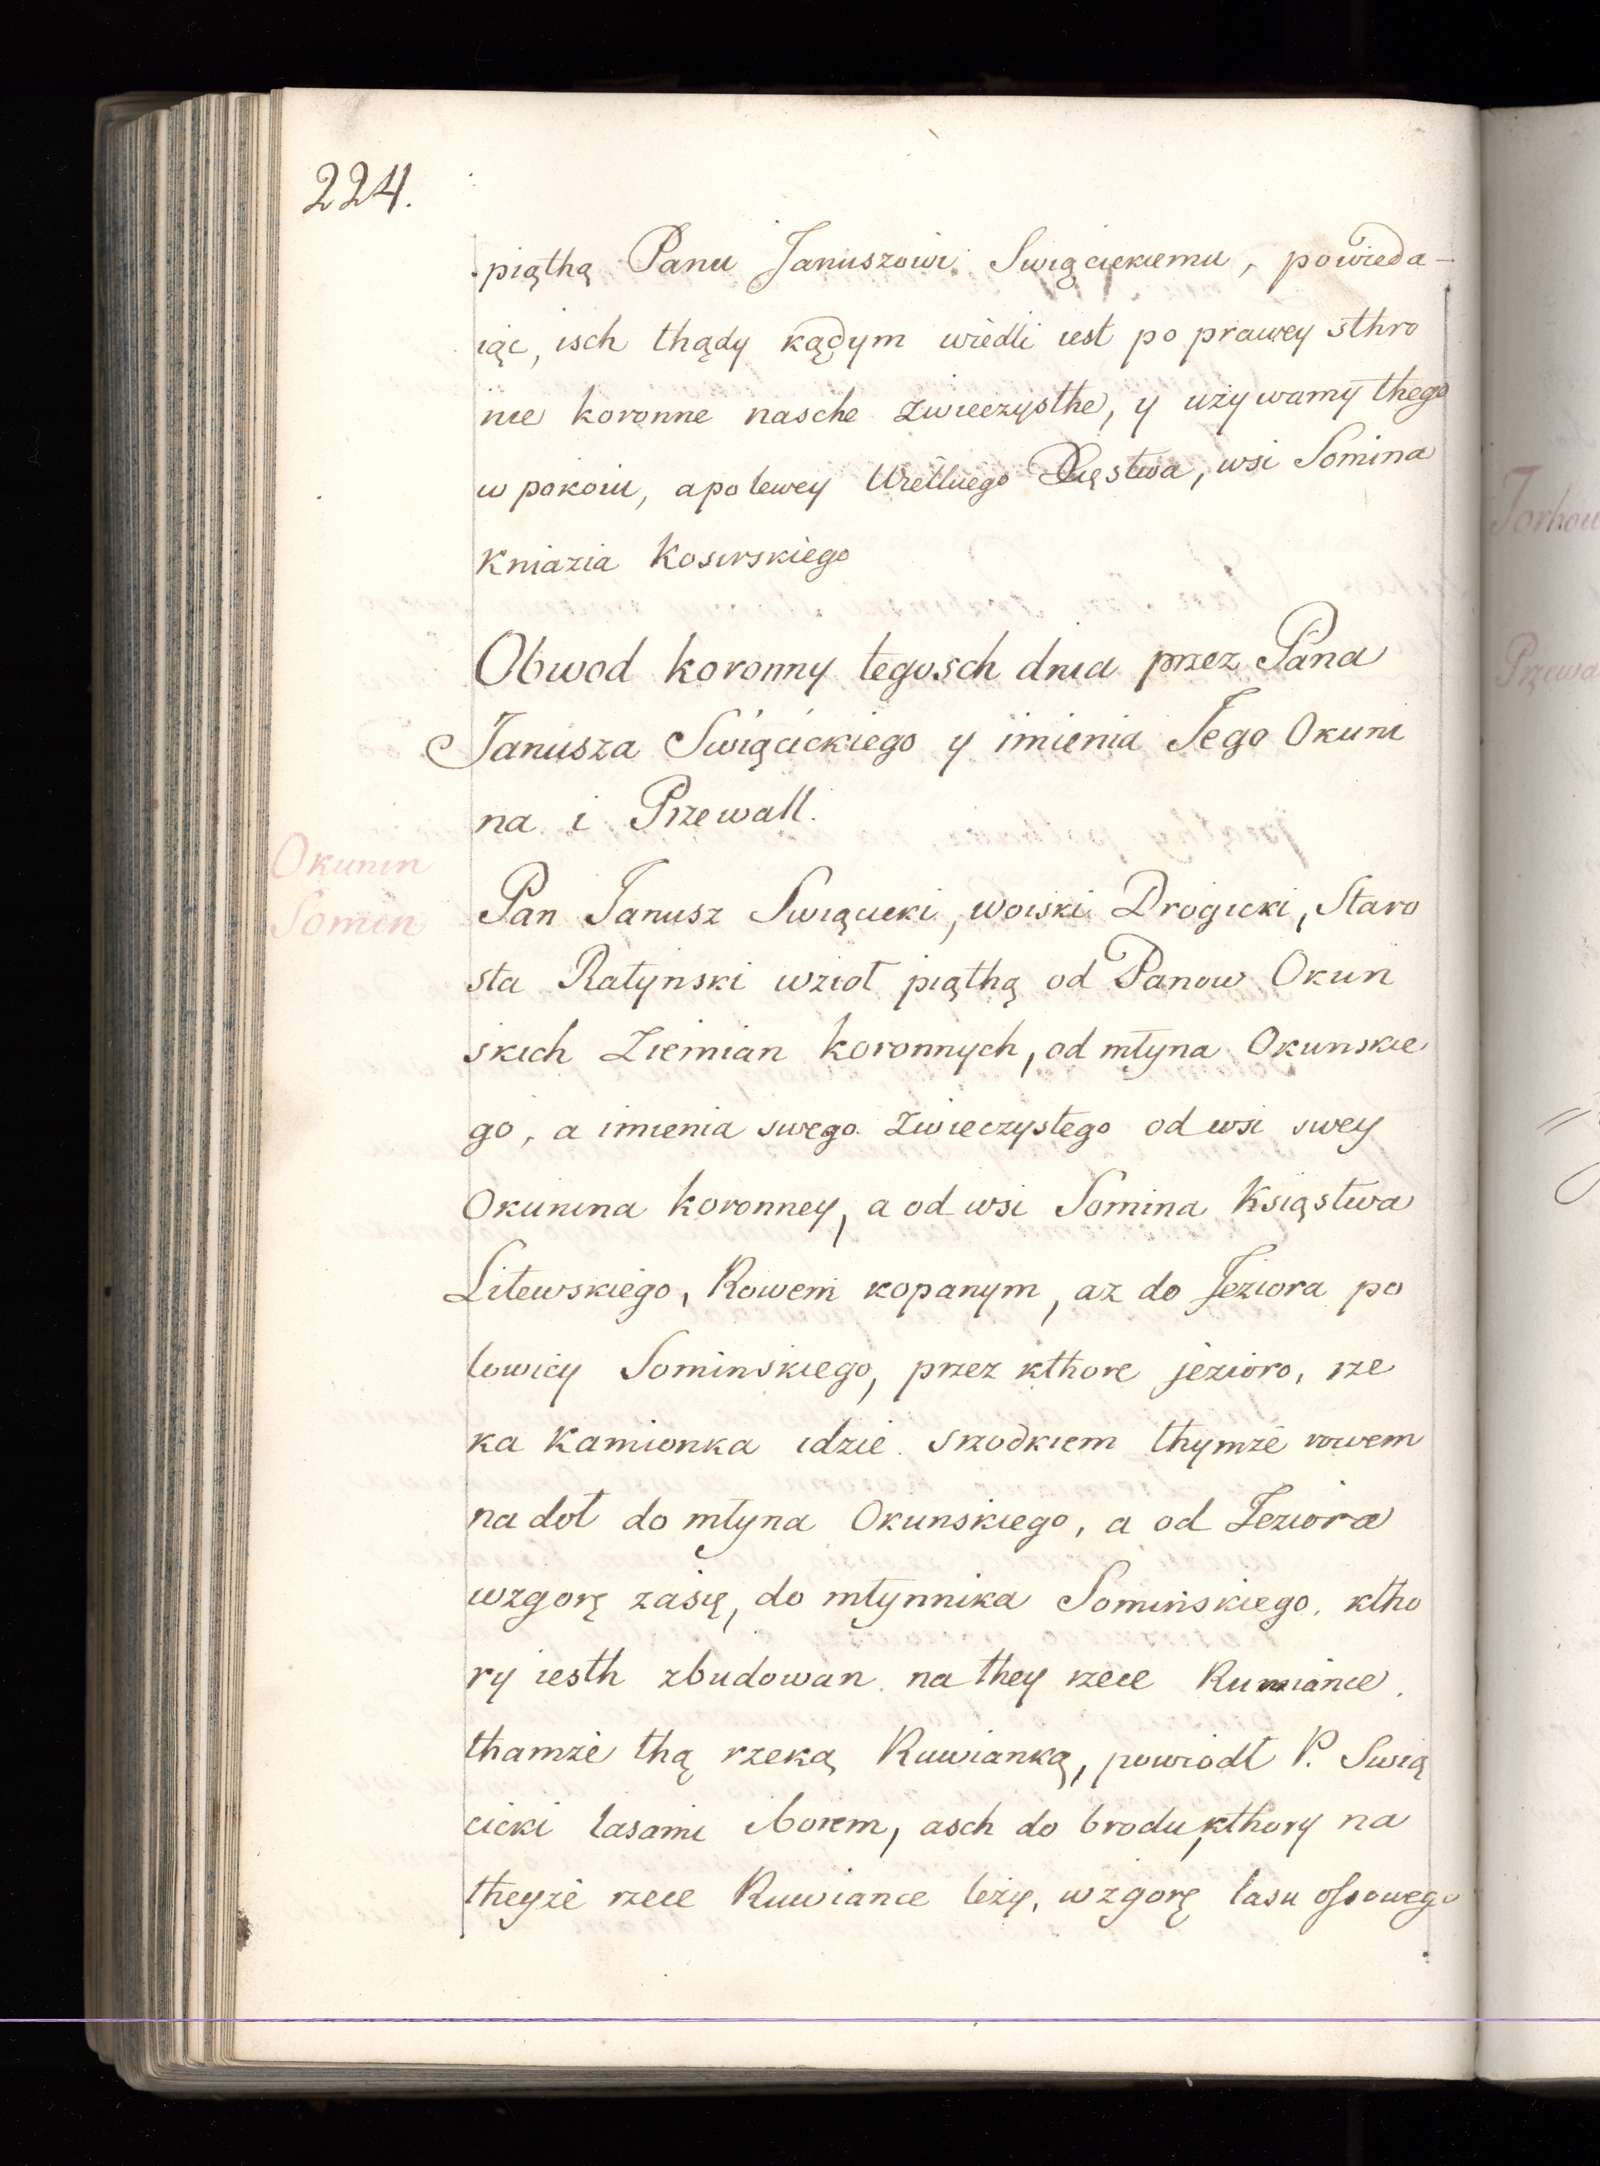 224.
piąthą Panu Januszowi Swiącickiemu, powieda-
iąc, isch thądy kądym wiedli iest po prawey sthro
nie koronne nasche zwieczysthe, y używamy thego
w pokoiu, a po lewey Wielkiego Xięstwa, wsi Somina
Kniazia Kosirskiego
Obwod koronny tegosch dnia przez Pana
Janusza Swiącickiego y imienia Jego Okuni
na i Przewall.
Okunin
Somin
Pan Janusz Swiącicki, woiski Drogicki, Staro
sta Ratynski wziol piąthą od Panow Okun
skich Ziemian koronnych, od młyna Okunskie
go, a imienia swego zwieczystego od wsi swey
Okunina koronney, a od wsi Somina Ksiąstwa
Litewskiego, Rowem kopanym, az do Jeziora po
lowicy Sominskiego, przez kthore jezioro, rze
ka Kamionka idzie srzodkiem thymze rowem
na doł do młyna Okunskiego, a od Jeziora
wzgorę zasię, do młynnika Sominskiego, ktho
ry iesth zbudowan na they rzece Ruwiance.
thamze thą rzeką Ruwianką, powiodł P. Swią
cicki lasami i borem, asch do brodu, kthory na
theyze rzece Ruwiance leży, wzgorę lasu ossowego
Torhow
Przewa